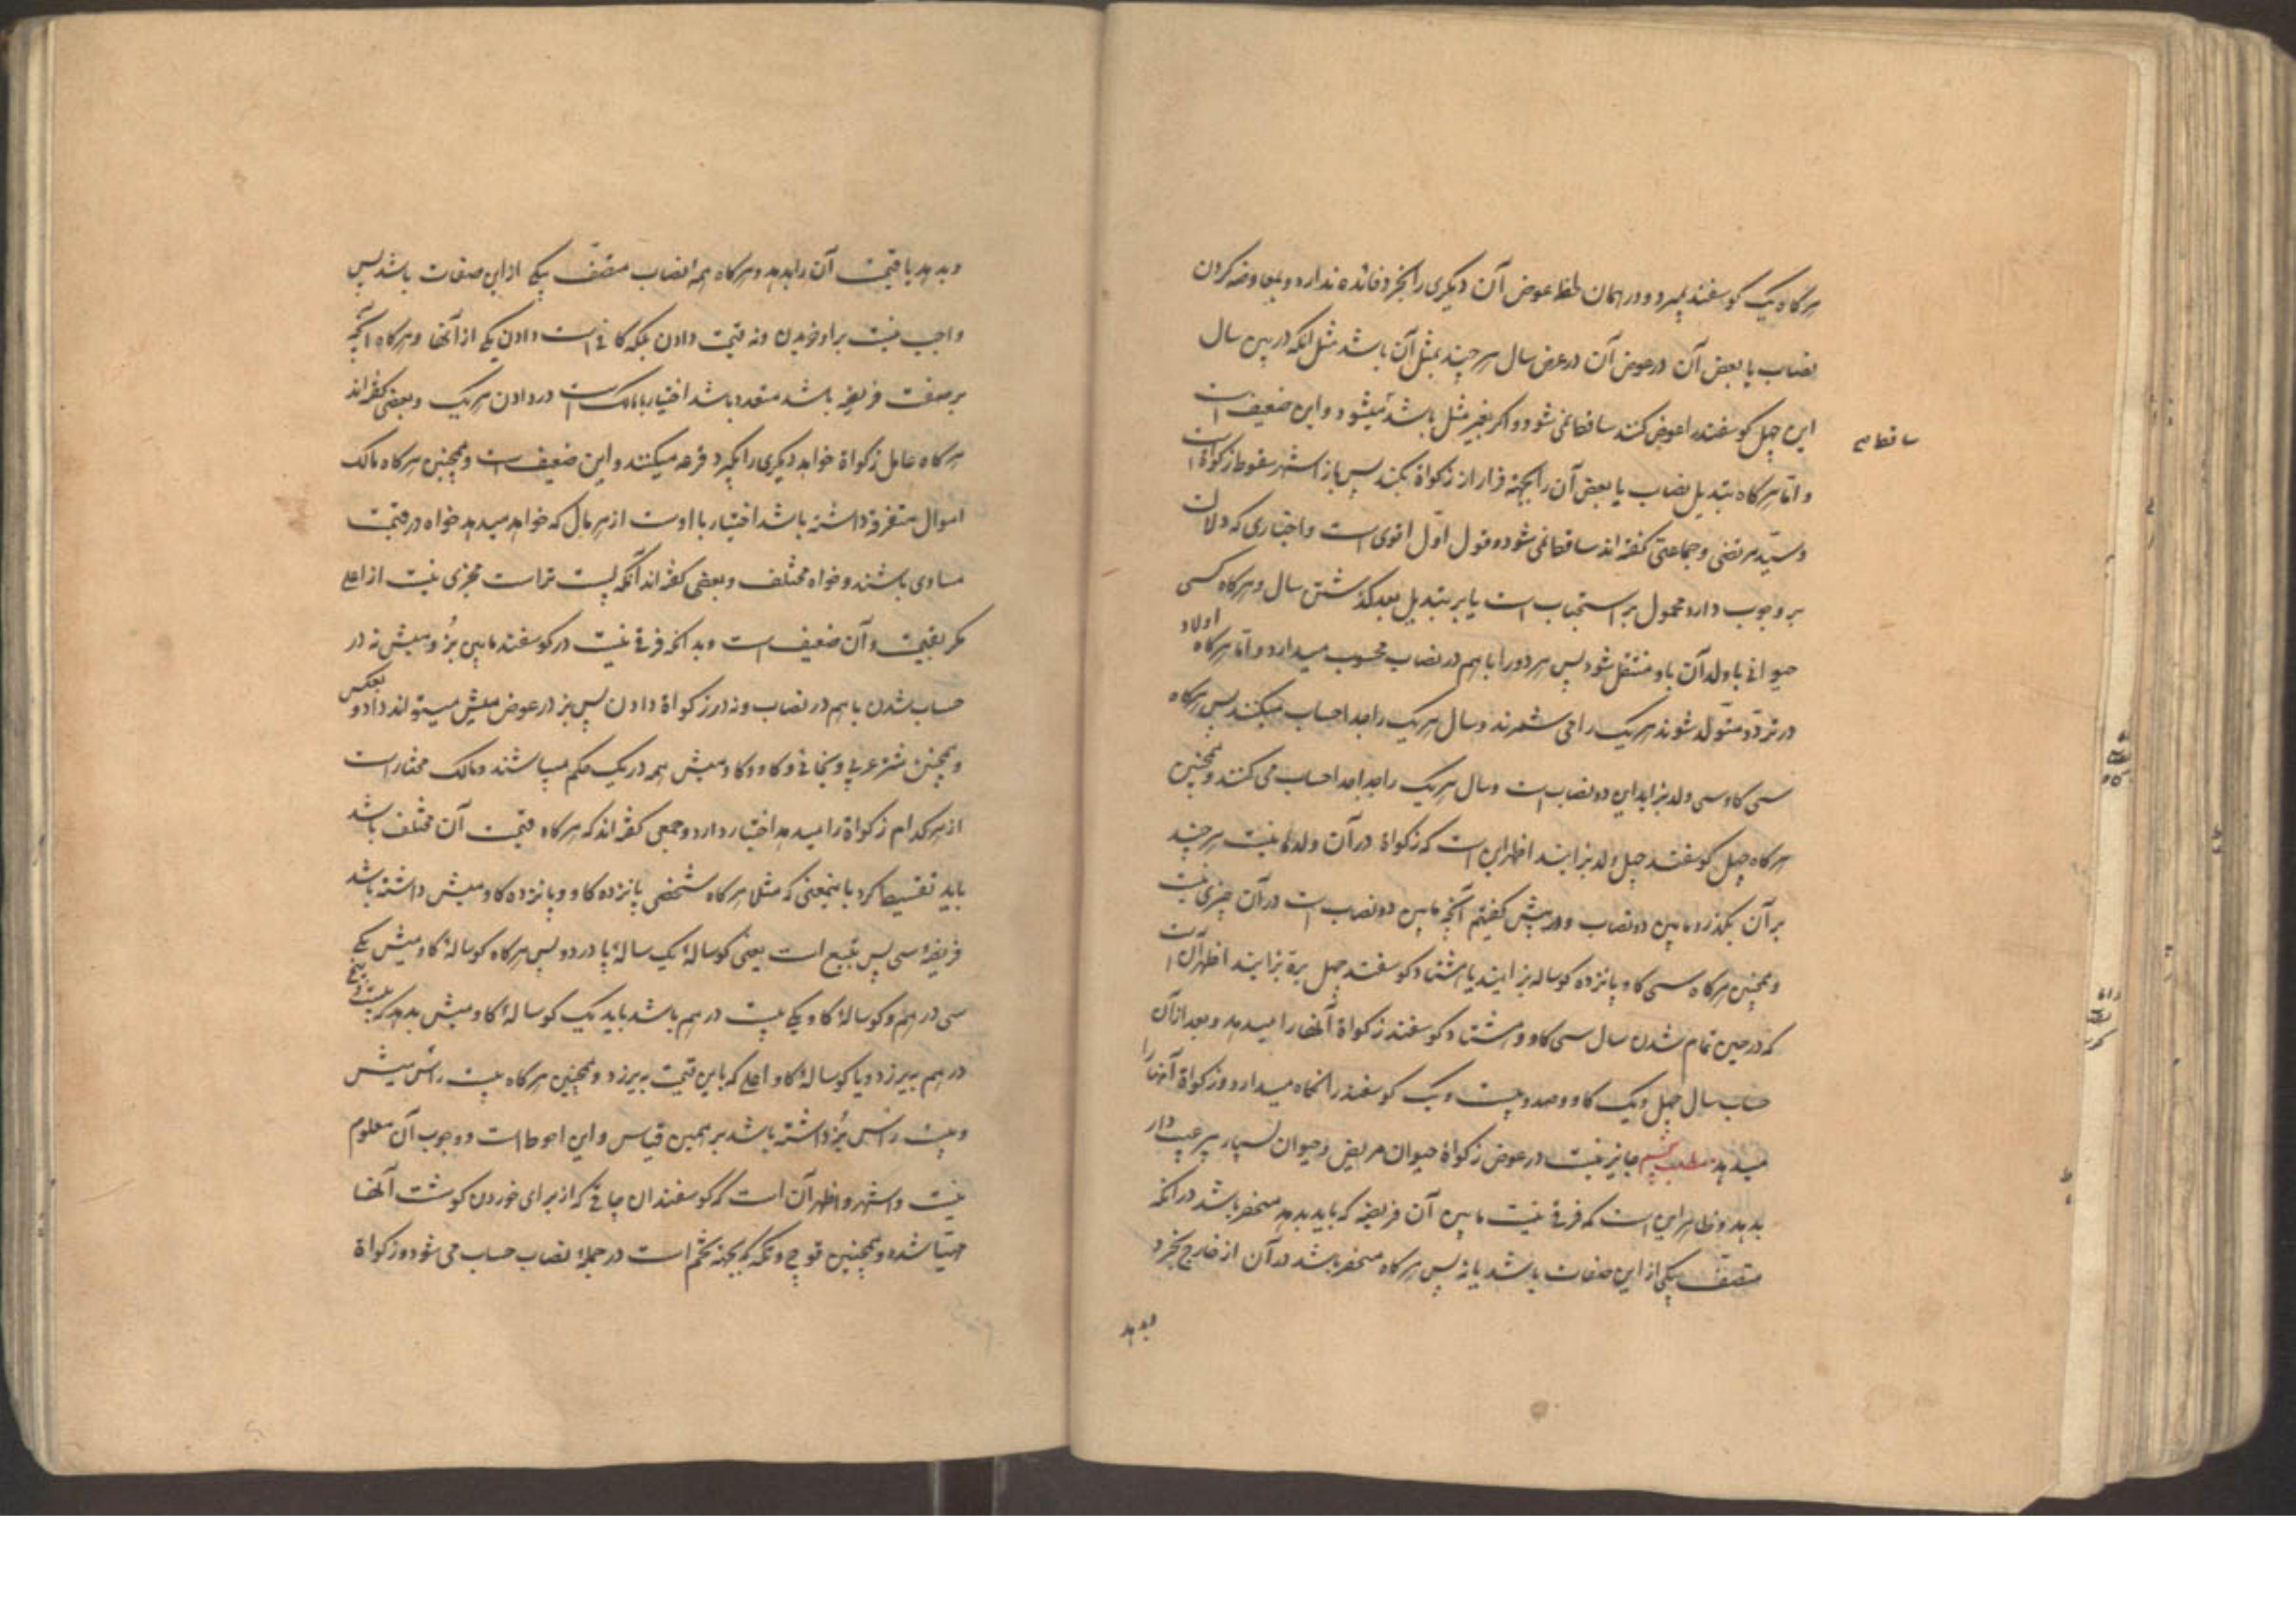 هرگاه یک گوسفند بمیرد و در همان لحظه عوض آن دیگری را بخرد فائده ندارد و بمعاوضه کردن
نصاب یا بعض آن در عوض آن در عرض سال هر چند بمثل آن باشد مثل آنکه در بین سال
این چهل گوسفند را عوض کنند ساقط نمی شود و اگر بغیر مثل باشد میشود و این ضعیف است
ساقط
و اما هرگاه تبدیل نصاب یا بعض آن را بجهة فرار از زکواة بکند پس باز اشهر سقوط زکواة است
و سید مرتضی و جماعتی گفته اند ساقط نمی شود و قول اول اقوی است و اخباری که دلالت
بر وجوب دارد محمول بر استحباب است یا بر تبدیل بعد گذشتن سال و هرگاه کسی
حیوانی با ولد آن باو منتقل شود پس هر دو را با هم در نصاب محسوب میدارد و اما هرگاه اولاد
در نزد او متولد شوند هر یک را می شمرند و سال هر یک را جدا حساب میکنند پس هرگاه
سی گاو سی ولد بزاید این دو نصاب است و سال هر یک را جدا جدا حساب می کنند و همچنین
هرگاه چهل گوسفند چهل ولد بزایند اظهر این است که زکواة در آن ولدها نیست هر چند
بر آن بگذرد ما بین دو نصاب و در پیش گفتیم آنچه ما بین دو نصاب است در آن چیزی نیست
و همچنین هرگاه سی گاو پانزده گوساله بزایند یا هشتاد گوسفند چهل بره بزایند اظهر آن است
که در حین تمام شدن سال سی گاو و هشتاد گوسفند زکواة آنها را میدهد و بعد از آن
حساب سال چهل و یک گاو و صد و بیست و یک گوسفند را نگاه میدارد و زکواة آنها را
میدهد مطلب جایز نیست در عوض زکواة حیوان مریض و حیوان بسیار پیر عیب دار
بدهد و ظاهر این است که فرقی نیست ما بین آن فریضه که باید بدهد منحصر باشد در آنکه
متصف بیکی از این صفات باشد یا نه پس هرگاه منحصر باشد در آن از خارج بخرد
و بدهد
و بدهد یا قیمت آن را بدهد و هرگاه همه نصاب متصف بیکی از این صفات باشد پس
واجب نیست بر او خریدن و نه قیمت دادن بلکه کافی است دادن یکی از آنها و هرگاه آنچه
بر صفت فریضه باشد متعدد باشد اختیار با مالک است در دادن هر یک و بعضی گفته اند
هرگاه عامل زکواة خواهد دیگری را بگیرد قرعه میکنند و این ضعیف است و همچنین هرگاه مالک
اموال متفرقه داشته باشد اختیار با اوست از هر مال که خواهد میدهد خواه در قیمت
مساوی باشند و خواه مختلف و بعضی گفته اند آنکه پست تر است مجزی نیست از اعلی
مگر بقیمت و آن ضعیف است و بدانکه فرقی نیست در گوسفند ما بین بز و میش نه در
حساب شدن با هم در نصاب و نه در زکواة دادن پس بز در عوض میش میتواند داد و بعکس
و همچنین شتر عربی و بخاتی و گاو و گاومیش همه در یک حکم میباشند و مالک مختار است
از هر کدام زکواة را میدهد اختیار دارد و جمعی گفته اند که هرگاه قیمت آن مختلف باشد
باید تقسیط کرد باینمعنی که مثلا هرگاه شخصی پانزده گاو و پانزده گاومیش داشته باشد
فریضه سی پس تبیع است یعنی گوسالۀ یک سالۀ پا در دو پس هرگاه گوسالۀ گاومیش یکی
سی درهم و گوسالۀ گاو یکی بیست درهم باشد باید یک گوسالۀ گاومیش بدهد که بیست و پنج
درهم بیرزد و یا گوسالۀ گاو اعلی که باین قیمت بیرزد و همچنین هرگاه بیست رأس میش
و بیست رأس بز داشته باشد بر همین قیاس و این احوط است و وجوب آن معلوم
نیست و اشهر و اظهر آن است که گوسفندان چاقی که از برای خوردن گوشت آنها
مهیّا شده و همچنین قوچ و تکه که بجهة تخم است در جملۀ نصاب حساب می شود و زکواة